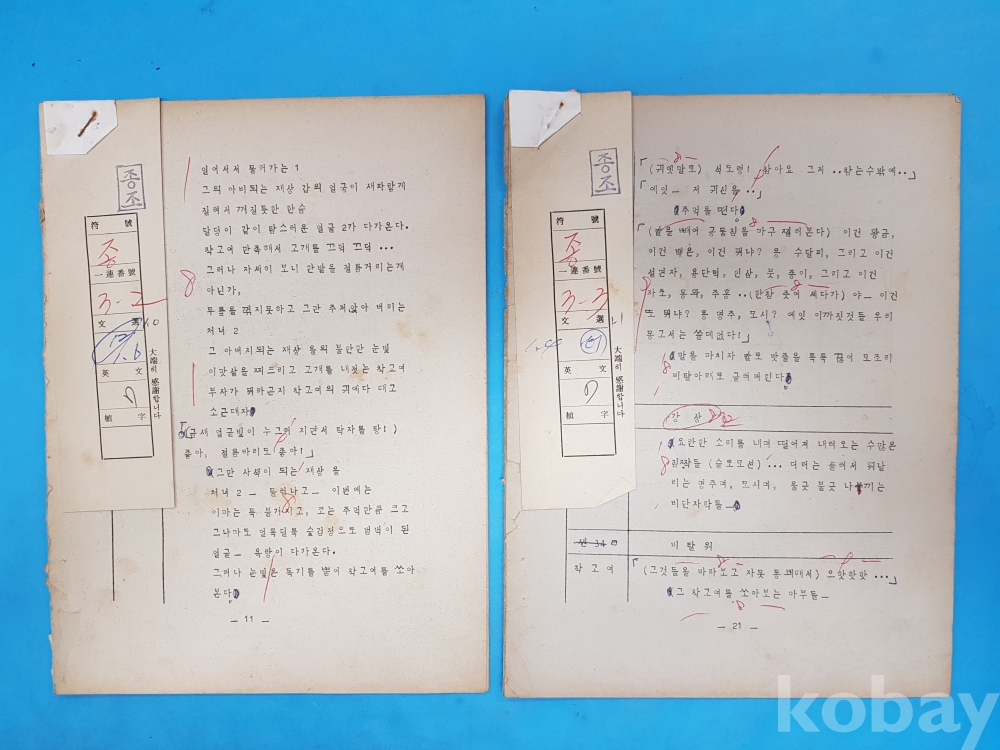 종조
符 號
종
一連番號
3-2
文 選
英 文
植 字
大端히 感謝합니다
일어서서 물러가는 1
그의 아비되는 재상 갑의 얼굴이 새파랗게
질려서 꺼질듯한 한숨
달덩이 같이 탐스러운 얼굴 2가 다가온다.
착고여 만족해서 고개를 끄덕 끄덕 ...
그러나 자세히 보니 한발을 절름거리는게
아닌가,
무릎을 꺾지못하고 그만 주저앉아 버리는
처녀 2
그 아버지되는 재상 을의 불안한 눈빛
이맛살을 찌프리고 고개를 내젓는 착고여
부사가 뭐라곤지 착고여의 귀에다 대고
소근대자
(금새 얼굴빛이 누그러 지면서 탁자를 탕!)
좋아, 절름바리도 좋아!」
그만 사색이 되는 재상 을
처녀 2 — 물러나고— 이번에는
이마는 툭 불거지고, 코는 주먹만큼 크고
그나마도 얼룩덜룩 숯검정으로 범벅이 된
얼굴— 옥랑이 다가온다.
그러나 눈빛은 독기를 뿜어 착고여를 쏘아
본다
— 11 —
종조
符 號
종
一連番號
3-3
文 選
英 文
植 字
大端히 感謝합니다
「(귀엣말로) 석도령! 참아요 그저 ..참는수밖에..」
「에잇— 저 귀신을..」
주먹을 떤다
「(칼을 빼어 공물짐을 마구 찔러본다) 이건 황금,
이건 백은, 이건 뭐냐? 응 수달피, 그리고 이건
설면자, 용단석, 인삼, 붓, 종이, 그리고 이건
자초, 동와, 주홍 ..(한참 줏어 세다가) 야— 이건
또 뭐냐? 응 명주, 모시? 에잇 이까짓것들 우리
몽고서는 쓸데없다!」
말을 마치자 칼로 밧줄을 툭툭 끊어 모조리
비탈아래로 굴려버린다
강 상
요란한 소리를 내며 떨어져 내려오는 수많은
짐짝들 (슬로모션) ... 더러는 풀어져 휘날
리는 명주며, 모시며, 울긋 불긋 나부끼는
비단자락들—
씬 34
비 탈 위
착 고 여 「(그것들을 바라보고 자못 통쾌해서) 으핫핫핫 ...」
그 착고여를 쏘아보는 마부들—
— 21 —
kobay